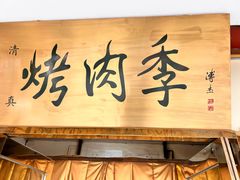 清真
烤肉季
溥杰